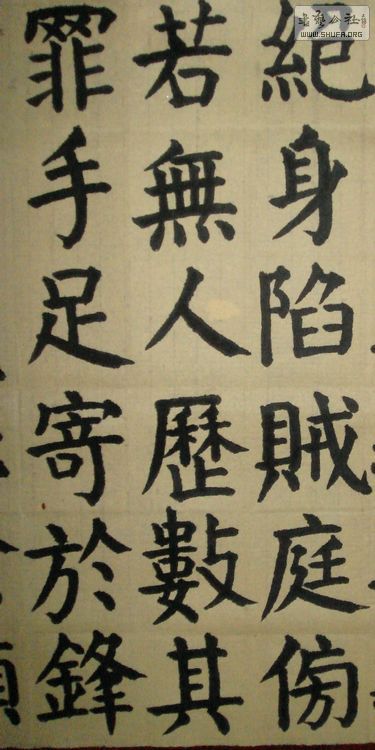 書藝公社
WWW.SHUFA.ORG
絕身陷賊庭傍
若無人歷數其
罪手足寄於鋒